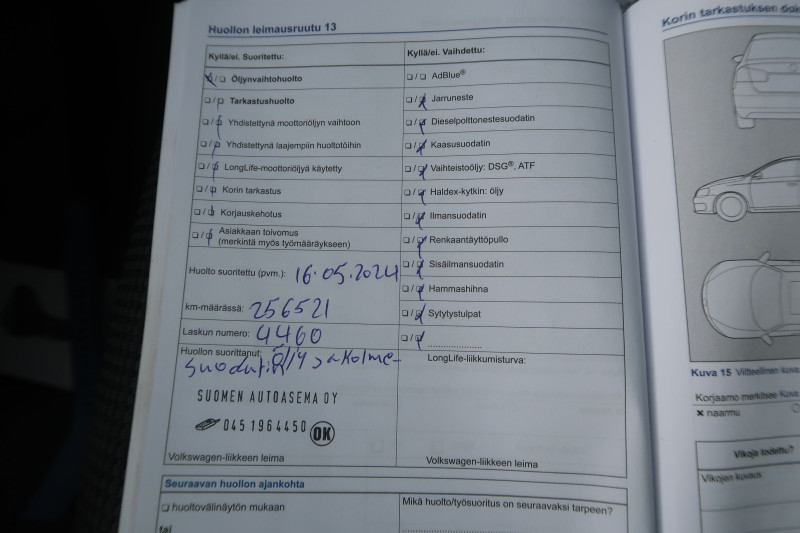 Huollon leimausruutu 13
Kyllä/ei. Suoritettu:
Öljynvaihtohuolto
Tarkastushuolto
Yhdistettynä moottoriöljyn vaihtoon
Yhdistettynä laajempiin huoltotöihin
LongLife-moottoriöljyä käytetty
Korin tarkastus
Korjauskehotus
Asiakkaan toivomus
(merkintä myös työmääräykseen)
Huolto suoritettu (pvm.): 16.05.2024
km-määrässä: 256521
Laskun numero: 4460
Huollon suorittanut: öljy ja kolme
suodatin
SUOMEN AUTOASEMA OY
045 1964450 OK
Volkswagen-liikkeen leima
Kyllä/ei. Vaihdettu:
AdBlue®
Jarruneste
Dieselpolttonestesuodatin
Kaasusuodatin
Vaihteistoöljy: DSG®, ATF
Haldex-kytkin: öljy
Ilmansuodatin
Renkaantäyttöpullo
Sisäilmansuodatin
Hammashihna
Sytytystulpat
LongLife-liikkumisturva:
Volkswagen-liikkeen leima
Seuraavan huollon ajankohta
huoltovälinäytön mukaan
tai
Mikä huolto/työsuoritus on seuraavaksi tarpeen?
Korin tarkastuksen
Kuva 15 Viitteellinen kuva
Korjaamo merkitsee Kuva
× naarmu
Vikoja todettu?
Vikojen kuvaus: